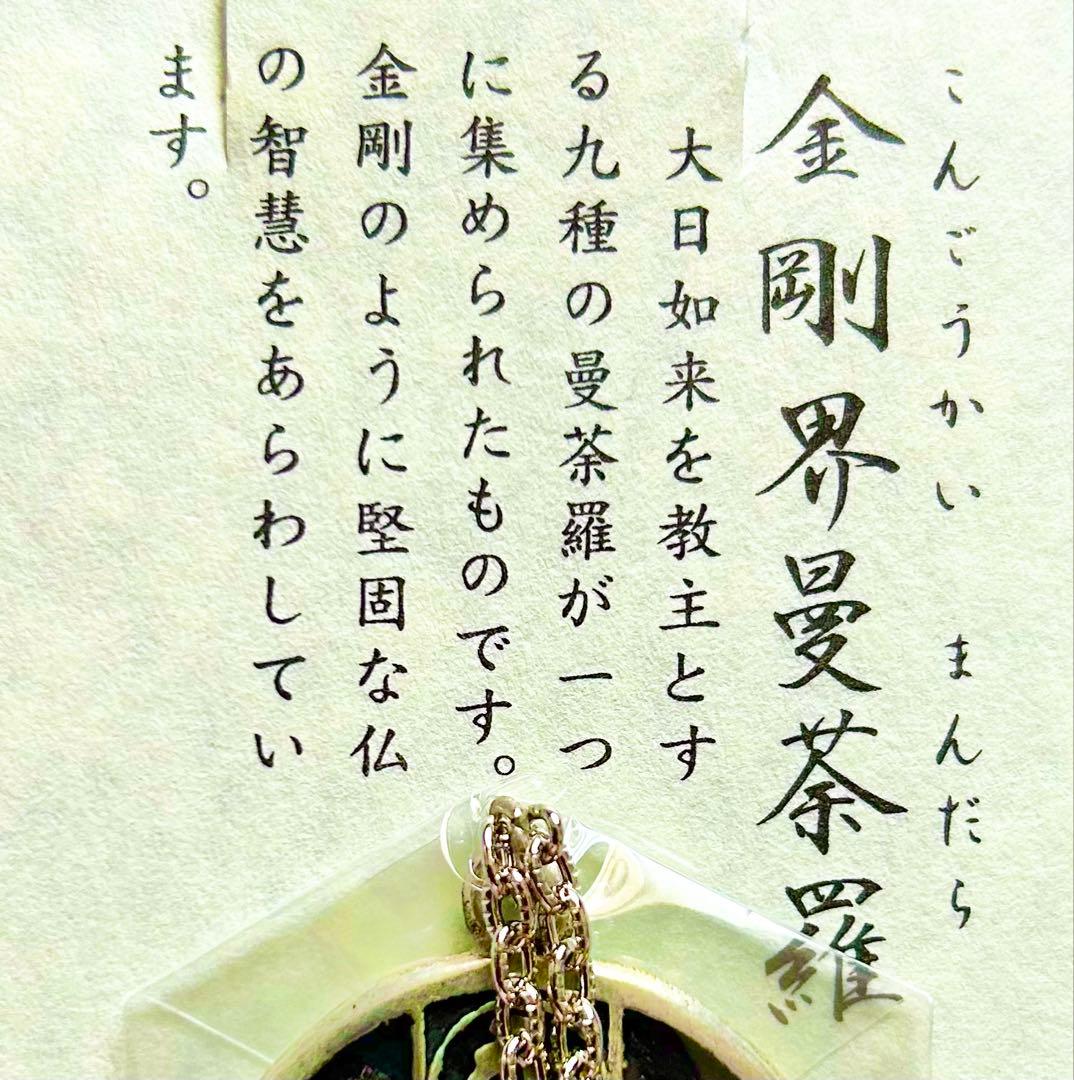 こんごうかい まんだら
金剛界曼荼羅
大日如来を教主とす
る九種の曼荼羅が一つ
に集められたものです。
金剛のように堅固な仏
の智慧をあらわしてい
ます。